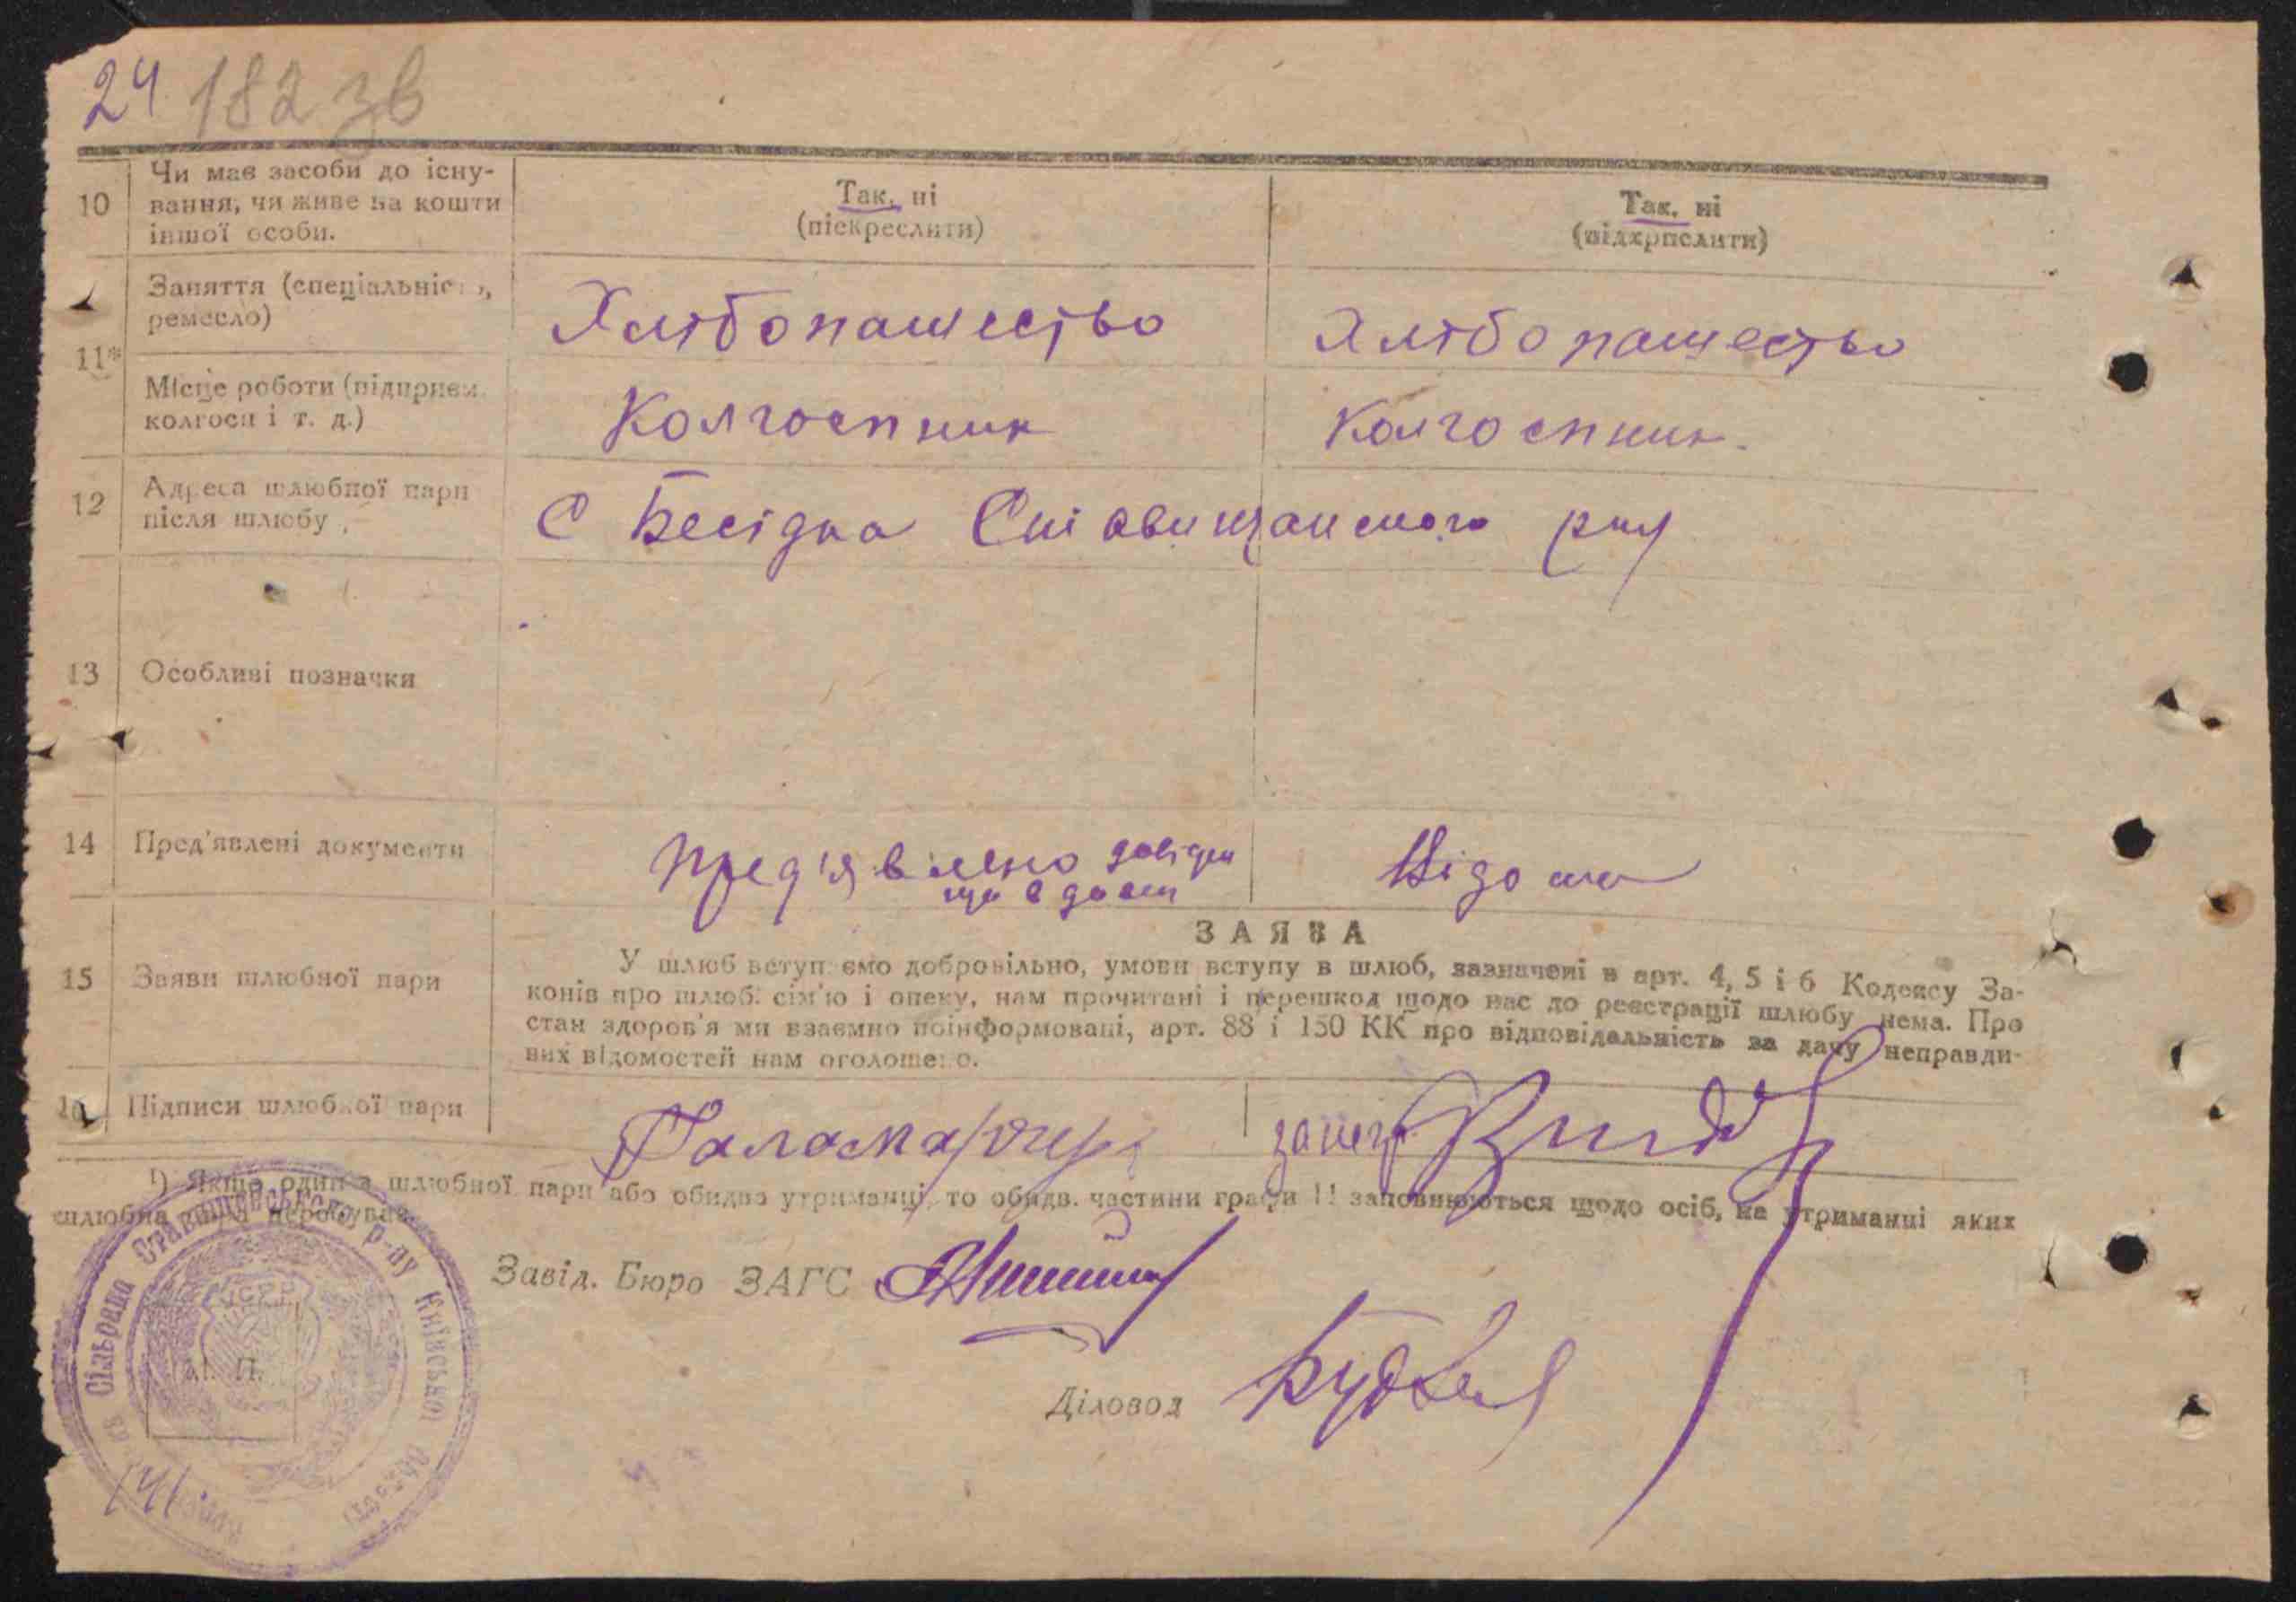 24 182 зв
10
Чи має засоби до існу-
вання, чи живе на кошти
іншої особи.
Так, ні
(піскреслити)
Так, ні
(підкрпслити)
11*
Заняття (спеціальність,
ремесло)
Хлібопашество
Хлібопашество
Місце роботи (підприєм.
колгосп і т. д.)
Колгоспник
Колгоспник.
12
Адреса шлюбної пари
після шлюбу
С Бесідка Ставищанского
13
Особливі позначки
14
Пред'явлені документи
пред'явлено
Відома
ЗАЯВА
15
Заяви шлюбної пари
У шлюб вступаємо добровільно, умови вступу в шлюб, зазначені в арт. 4, 5 і 6 Кодексу За-
конів про шлюб, сім'ю і опеку, нам прочитані і перешкод щодо нас до реєстрації шлюбу нема. Про
стан здоров'я ми взаємно поінформовані, арт. 88 і 150 КК про відповідальність за дачу неправди-
вих відомостей нам оголошено.
Підписи шлюбної пари
¹) Якщо один з шлюбної пари або обидва утриманці, то обидв. частини графи 11 заповнюються щодо осіб, на утриманні яких
шлюбна пара перебуває.
Завід. Бюро ЗАГС
Діловод
М. П.
Сільрада Ставищенського р-ну Київської
УСРР